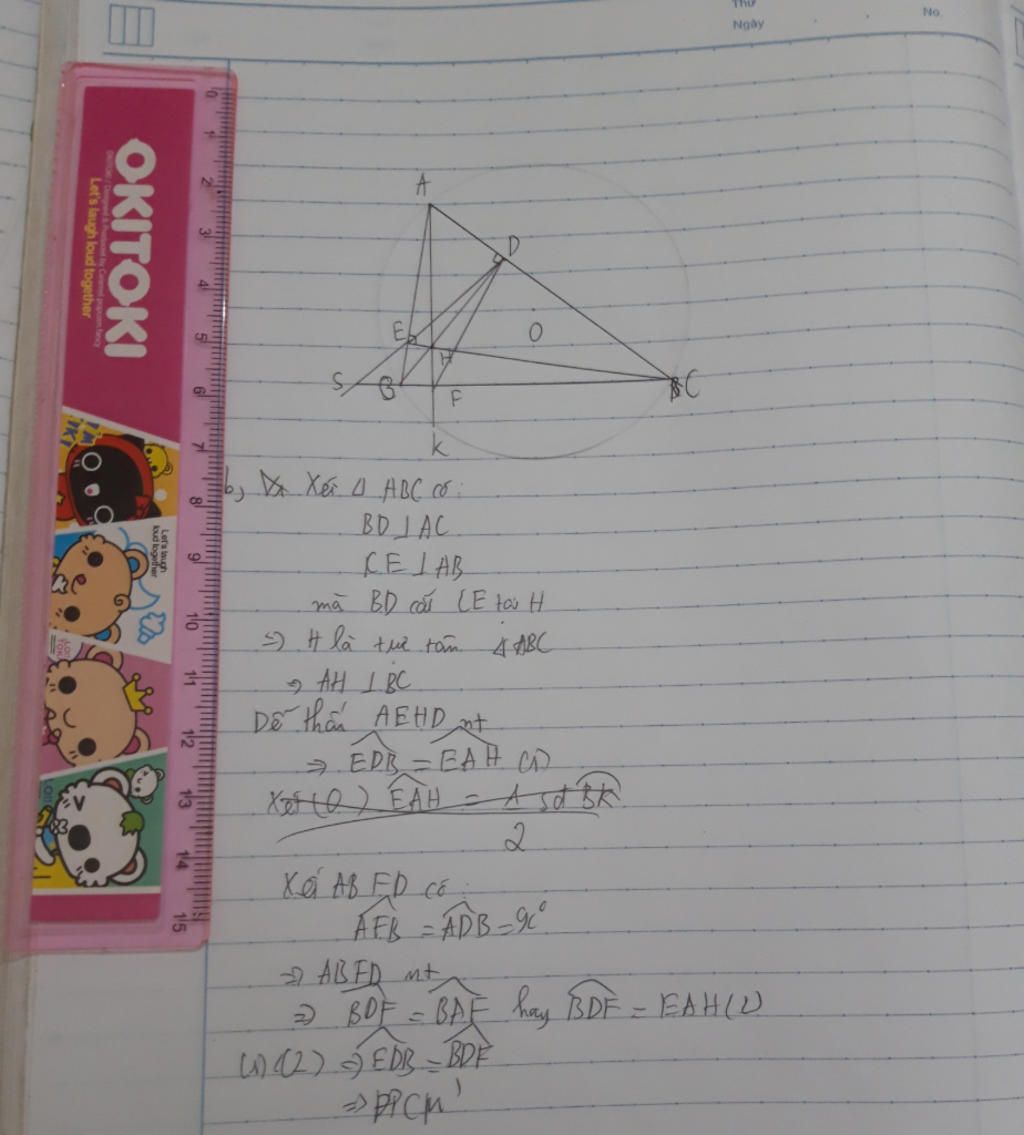 Thứ
Ngày
No.
OKITOKI
Let's laugh loud together
0 1 2 3 4 5 6 7 8 9 10 11 12 13 14 15
A
D
E
H
O
S
B
F
C
K
b, Xét Δ ABC có:
BD ⊥ AC
CE ⊥ AB
mà BD cắt CE tại H
=> H là trực tâm Δ ABC
=> AH ⊥ BC
Dễ thấy AEHD nt
=> EDB = EAH (1)
Xét (O) EAH = 1 sđ BK
2
Xét ABFD có:
AFB = ADB = 90°
=> ABFD nt
=> BDF = BAF hay BDF = EAH (2)
(1) (2) => EDB = BDF
=> ĐPCM